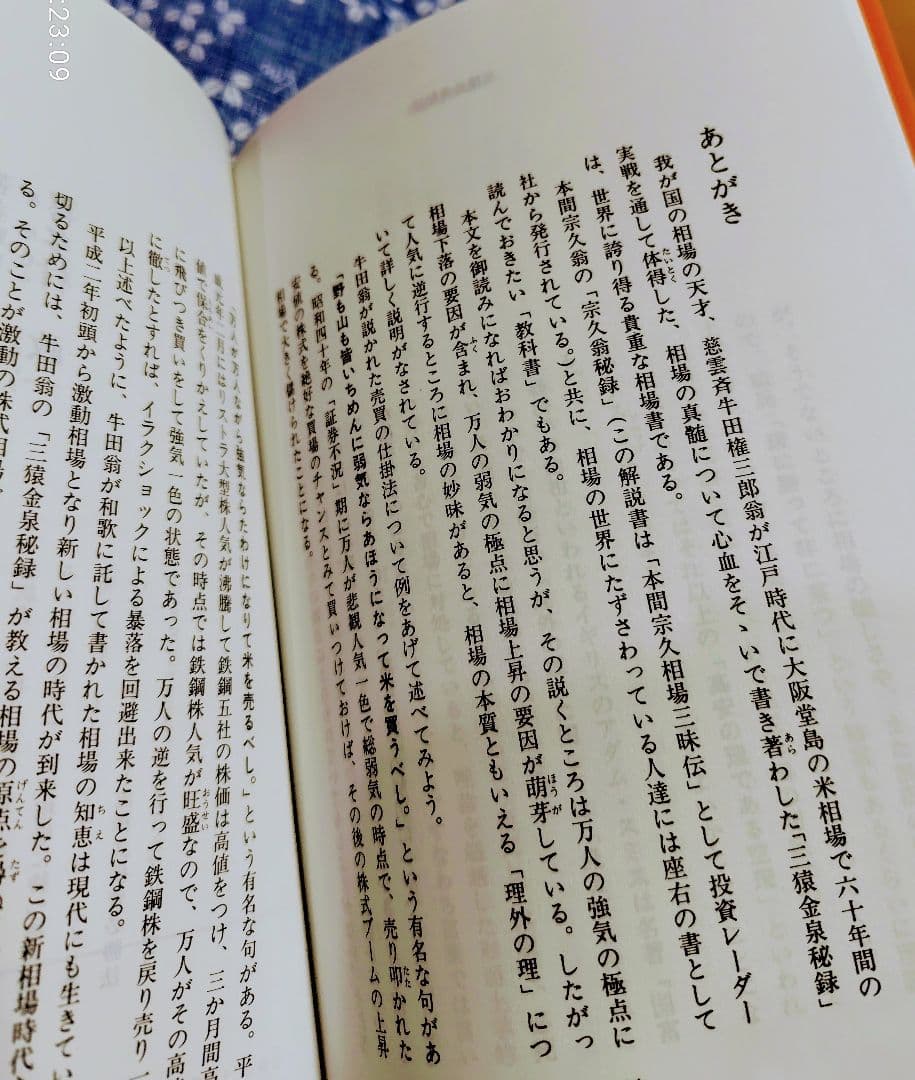 :23:09
あとがき
我が国の相場の天才、慈雲斉牛田権三郎翁が江戸時代に大阪堂島の米相場で六十年間の
実戦を通して体得した、相場の真髄について心血をそゝいで書き著わした「三猿金泉秘録」
は、世界に誇り得る貴重な相場書である。
本間宗久翁の「宗久翁秘録」(この解説書は「本間宗久相場三昧伝」として投資レーダー
社から発行されている。)と共に、相場の世界にたずさわっている人達には座右の書として
読んでおきたい「教科書」でもある。
本文を御読みになればおわかりになると思うが、その説くところは万人の強気の極点に
相場下落の要因が含まれ、万人の弱気の極点に相場上昇の要因が萌芽している。したがっ
て人気に逆行するところに相場の妙味があると、相場の本質ともいえる「理外の理」につ
いて詳しく説明がなされている。
牛田翁が説かれた売買の仕掛法について例をあげて述べてみよう。
「野も山も皆いちめんに弱気ならあほうになって米を買うべし。」という有名な句があ
る。昭和四十年の「証券不況」期に万人が悲観人気一色で総弱気の時点で、売り叩かれた
安値の株式を絶好な買場のチャンスとみて買いつけておけば、その後の株式ブームの上昇
相場で大きく儲けられたことになる。
「万人が万人ながら強気ならたわけになりて米を売るべし。」という有名な句がある。平
成元年二月にはリストラ大型株人気が沸騰して鉄鋼五社の株価は高値をつけ、三か月間高
値で保合をくりかえしていたが、その時点では鉄鋼株人気が旺盛なので、万人がその高
に飛びつき買いをして強気一色の状態であった。万人の逆を行って鉄鋼株を戻り売り一
に徹したとすれば、イラクショックによる暴落を回避出来たことになる。
以上述べたように、牛田翁が和歌に託して書かれた相場の知恵は現代にも生きてい
る。
平成二年初頭から激動相場となり新しい相場の時代が到来した。この新相場時代
切るためには、牛田翁の「三猿金泉秘録」が教える相場の原点を尋ね
る。そのことが激動の株式相場